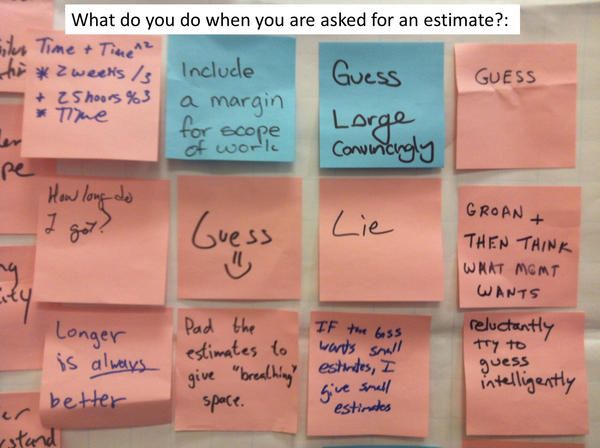 What do you do when you are asked for an estimate?:
Time + Time^2
* 2 weeks /3
+ 25 hours %3
* TIME
Include
a margin
for scope
of work
Guess
Large
Convincingly
GUESS
How long do
I got?
Guess
Lie
GROAN +
THEN THINK
WHAT MGMT
WANTS
Longer
is always
better
Pad the
estimates to
give "breathing"
space.
IF the boss
wants small
estimates, I
give small
estimates
reluctantly
try to
guess
intelligently
pe
ity
er
stand